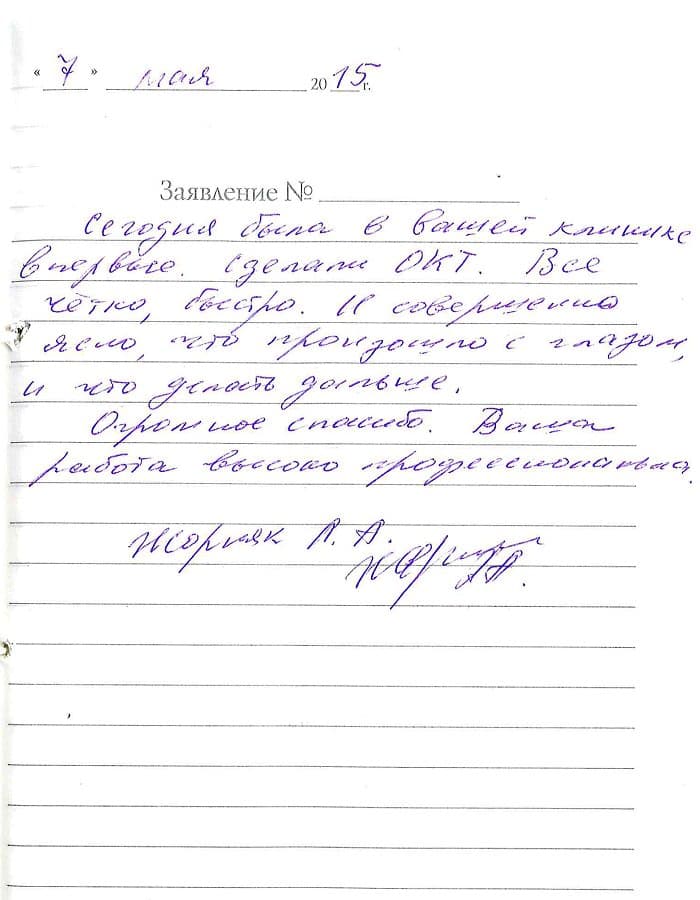 « 7 » мая 2015 г.
Заявление № 
Сегодня была в вашей клинике
впервые. Сделали ОКТ. Все
чётко, быстро. И совершенно
ясно, что произошло с глазом,
и что делать дальше.
Огромное спасибо. Ваша
работа высоко профессиональна.
Жорняк Л. А.